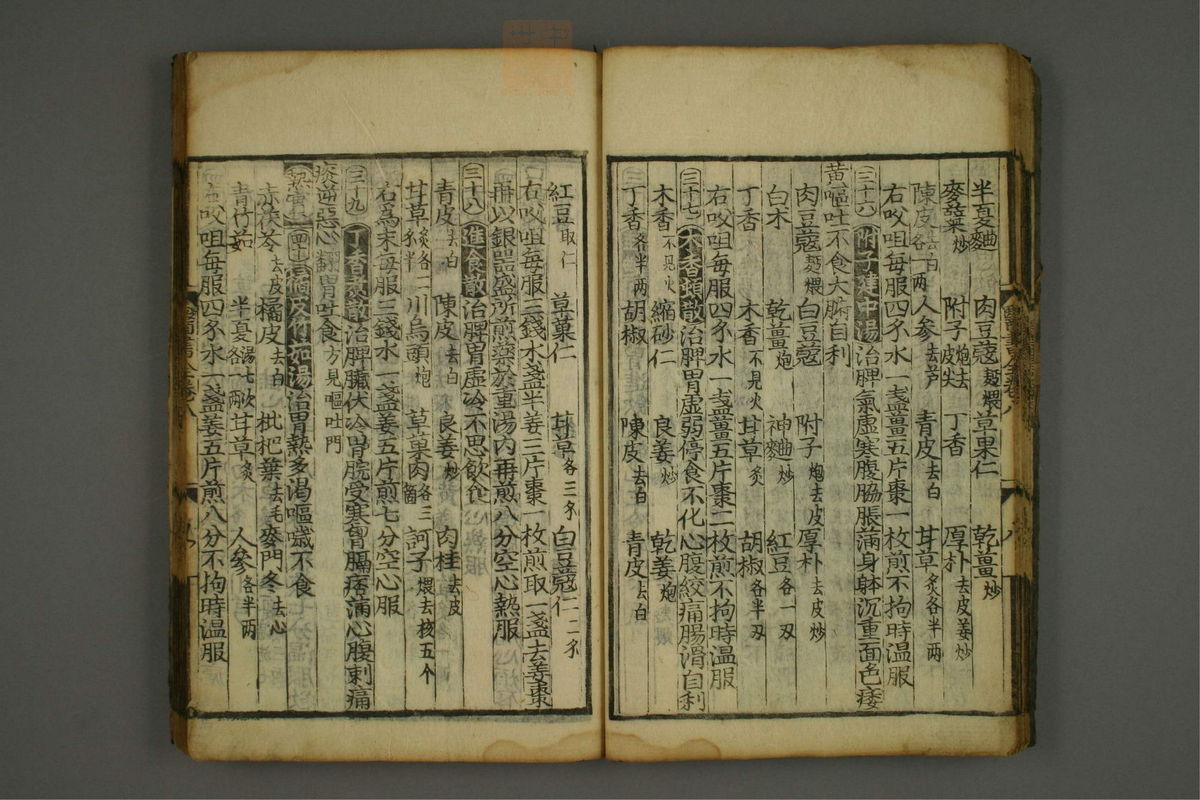 半夏曲 肉豆蔻麵煨 草果仁 乾薑炒
麥蘖炒 附子炮去皮尖 丁香 厚朴去皮姜炒
陳皮去白 人參去芦 青皮去白 甘草炙各半兩
右㕮咀每服四錢水一盞薑五片棗一枚煎不拘時温服
三十六 附子建中湯治脾氣虛寒腹脇脹滿身體沉重面色痿
黄嘔吐不食大腑自利
肉豆蔻麵煨 白豆蔻 附子炮去皮 厚朴去皮炒
白朮 乾薑炮 神麯炒 紅豆各一兩
丁香 木香不見火 甘草炙 胡椒各半兩
右㕮咀每服四錢水一盞薑五片棗二枚煎不拘時温服
三十七 木香順散治脾胃虛弱停食不化心腹絞痛腸滑自利
木香不見火 縮砂仁 良姜炒 乾姜炮
丁香各半兩 胡椒 陳皮去白 青皮去白
紅豆取仁 草菓仁 甘草各三錢 白豆蔻仁一二錢
右㕮咀每服三錢水盞半姜三片棗一枚煎取一盞去姜棗
再以銀器盛所煎藥於重湯内再煎八分空心熱服
三十八 進食散治脾胃虛冷不思飲食
青皮去白 陳皮去白 良姜炒 肉桂去皮
甘草炙各一錢半 川烏頭炮 草菓肉各三箇 訶子煨去核五个
右爲末每服三錢水一盞姜五片煎七分空心服
三十九 丁香煮散治脾臟伏冷胃脘受寒胸膈痞滿心腹刺痛
痰逆惡心翻胃吐食方見嘔吐門
四十 橘皮竹茹湯治胃熱多渴嘔噦不食
赤茯苓去皮 橘皮去白 枇杷葉去毛 麥門冬去心
青竹茹 半夏湯七次各一兩 甘草炙 人參各半兩
右㕮咀每服四錢水一盞姜五片煎八分不拘時温服